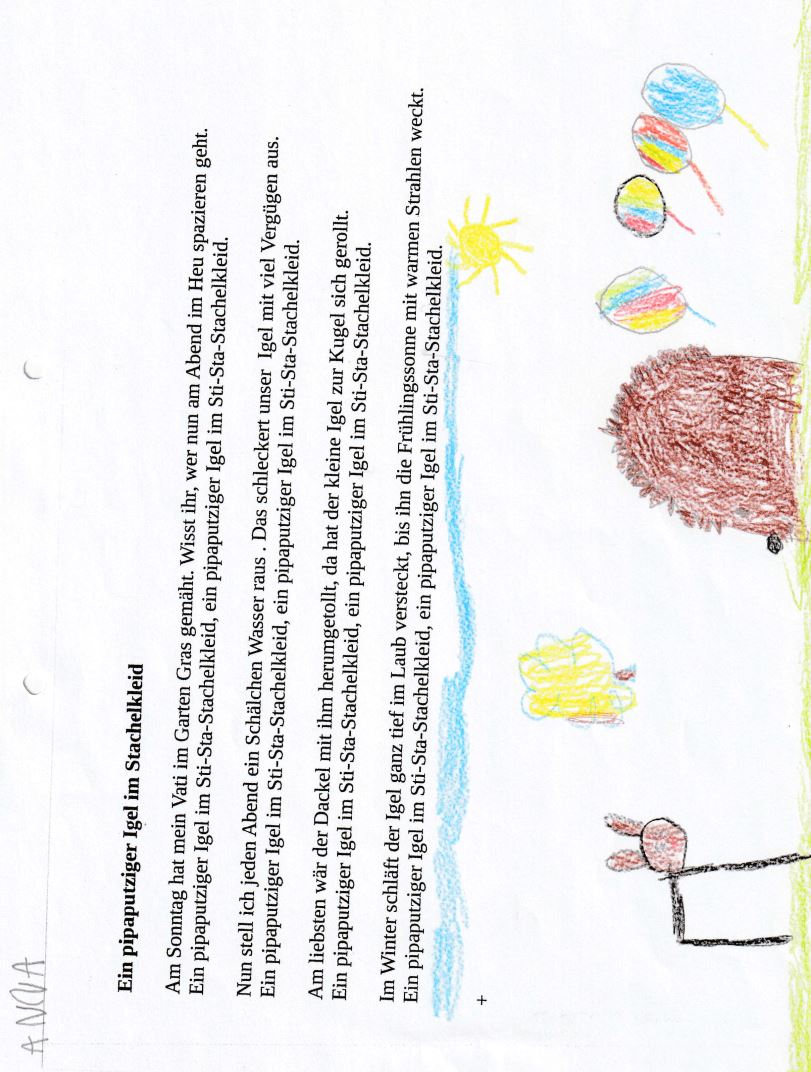 ANNA
Ein pipaputziger Igel im Stachelkleid
Am Sonntag hat mein Vati im Garten Gras gemäht. Wisst ihr, wer nun am Abend im Heu spazieren geht.
Ein pipaputziger Igel im Sti-Sta-Stachelkleid, ein pipaputziger Igel im Sti-Sta-Stachelkleid.
Nun stell ich jeden Abend ein Schälchen Wasser raus . Das schleckert unser Igel mit viel Vergügen aus.
Ein pipaputziger Igel im Sti-Sta-Stachelkleid, ein pipaputziger Igel im Sti-Sta-Stachelkleid.
Am liebsten wär der Dackel mit ihm herumgetollt, da hat der kleine Igel zur Kugel sich gerollt.
Ein pipaputziger Igel im Sti-Sta-Stachelkleid, ein pipaputziger Igel im Sti-Sta-Stachelkleid.
Im Winter schläft der Igel ganz tief im Laub versteckt, bis ihn die Frühlingssonne mit warmen Strahlen weckt.
Ein pipaputziger Igel im Sti-Sta-Stachelkleid, ein pipaputziger Igel im Sti-Sta-Stachelkleid.
+